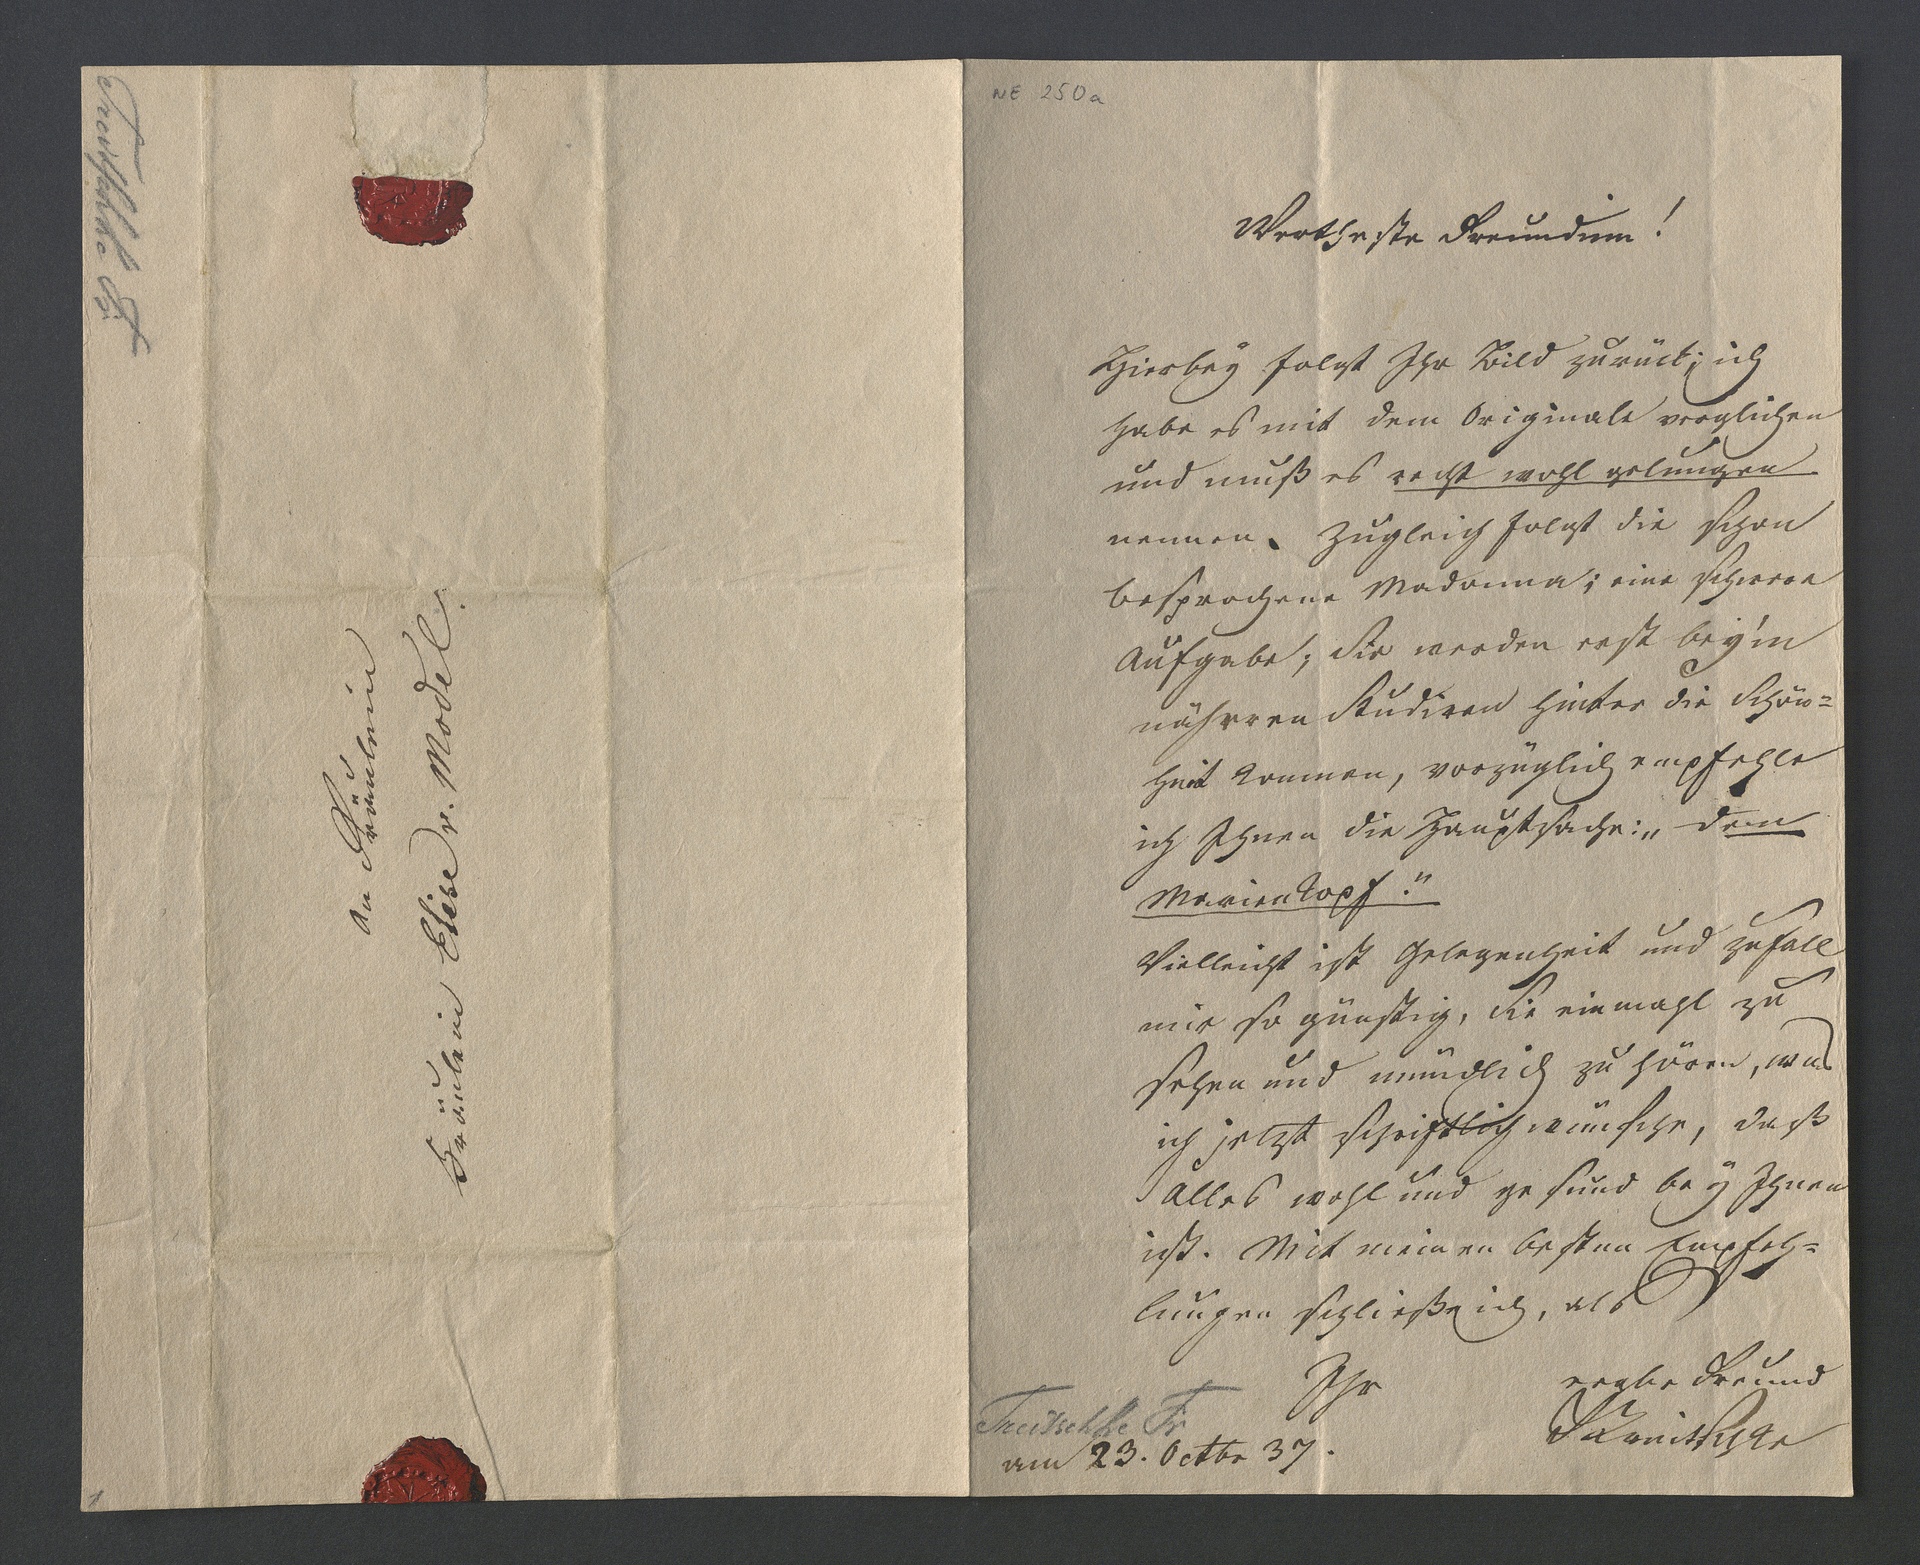 Treitschke Fr.
An Fräulein
Fräulein Elise v. Model.
1
NE 250a
Wertheste Freundinn!
Hierbey folgt Ihr Bild zurück; ich
habe es mit dem Originale verglichen
und muß es recht wohl gelungen
nennen. Zugleich folgt die schon
besprochene Madonna; eine schwere
Aufgabe; Sie werden erst bey'm
näheren Studiren hinter die Schön=
heit kommen, vorzüglich empfehle
ich Ihnen die Hauptsache: „den
Marienkopf."
Vielleicht ist Gelegenheit und Zufall
mir so günstig, Sie einmahl zu
sehen und mündlich zu hören, was
ich jetzt schriftlich wünsche, daß
Alles wohl und gesund bey Ihnen
ist. Mit meinen besten Empfeh=
lungen schließe ich, als
Ihr ergbr Freund
Treitschke Fr
FTreitschke
am 23. Octbr 37.